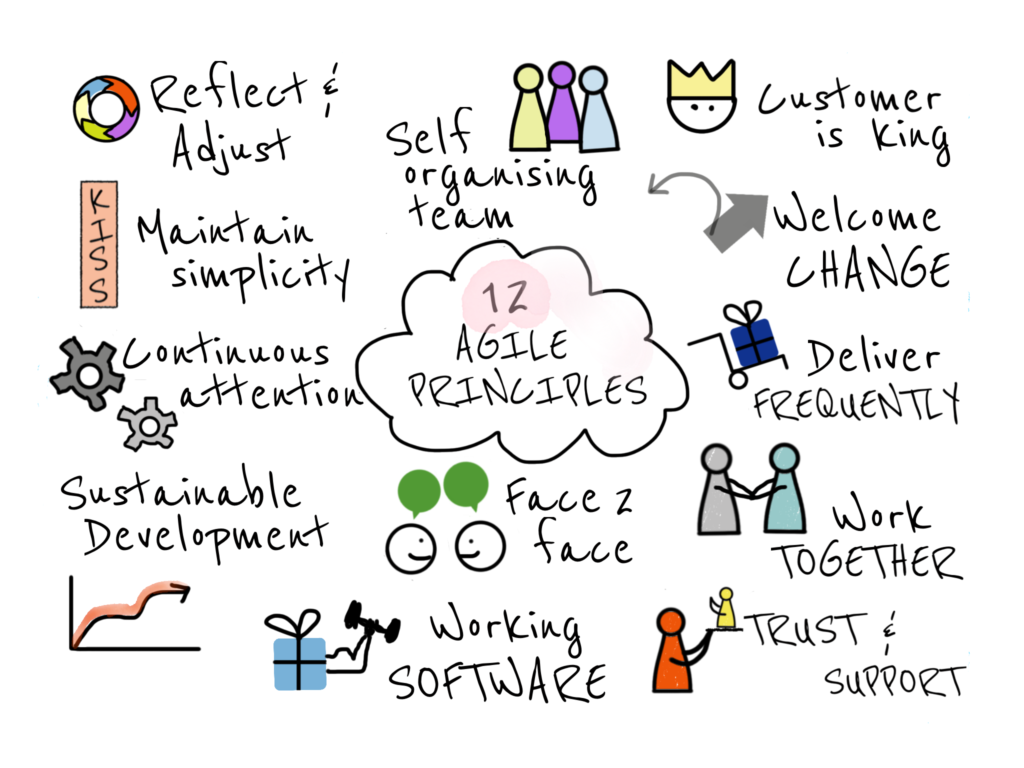 Reflect &
Adjust
Self
organising
team
Customer
is King
KISS
Maintain
simplicity
Welcome
CHANGE
12
AGILE
PRINCIPLES
Continuous
attention
Deliver
FREQUENTLY
Sustainable
Development
Face 2
face
Work
TOGETHER
Working
SOFTWARE
TRUST &
SUPPORT